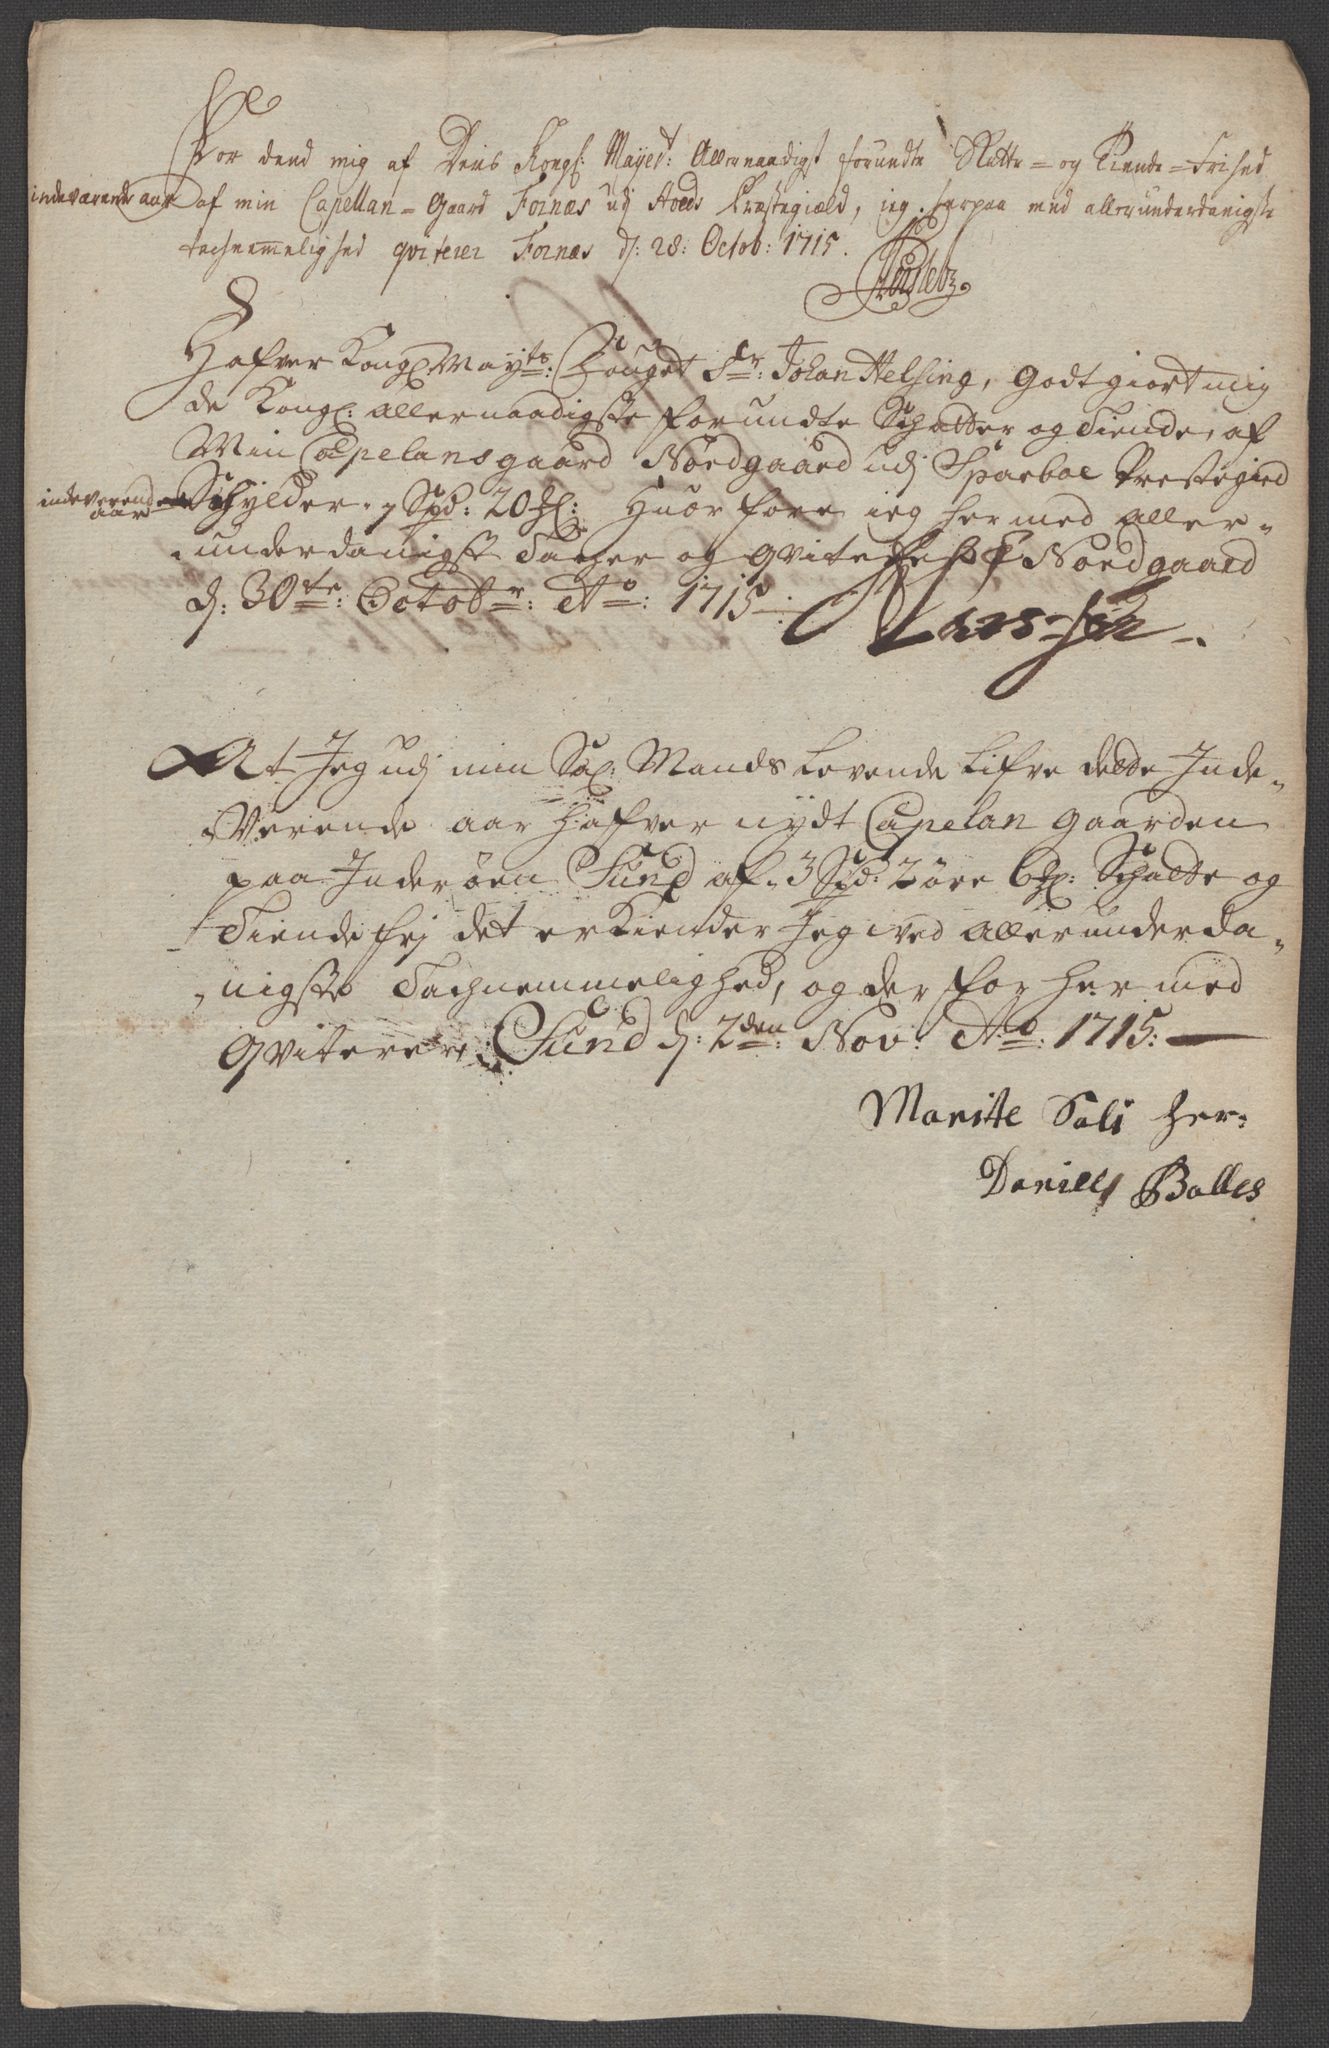 For dend mig af Deris Kongl: Mayest: Allernaadigst forundte Skatte= og Tiende=Frihed
indeværende aar af min Capellan=Gaard Fornæs udj Præstegiæld, jeg herpaa med allerunderdanigste
tachnemmelighed qviterer Fornæs d: 28: Octob: 1715.
Hafver Kongl Mayts: Fouget Sr: Johan Helsing, godtgiort mig
de Kongl: allernaadigste forundte Schatter og Tiende, af
Min Capelansgaard Nordgaard udj Sparboe Prestegield
indeverende aar Schylder 7 Spd: 20 Huorfore ieg hermed aller-
underdanigst Tacher og qviterer Nordgaard
d: 30te: Octobr: Ao: 1715
At Jeg udj min Sal: Mands Levende Lifve dette Inde-
Verende aar hafver nydt Capelan gaarden
paa Inderøen Sund af 3 Spd: 2 öre 6 Schatte og
Tiende frj det erkiender Jeg ved Allerunderda-
nigste Tachnemmelighed, og derfor hermed
qviterer, Sund d: 2den: Nov: Ao: 1715:
Marite Sali her:
Daniels Balles